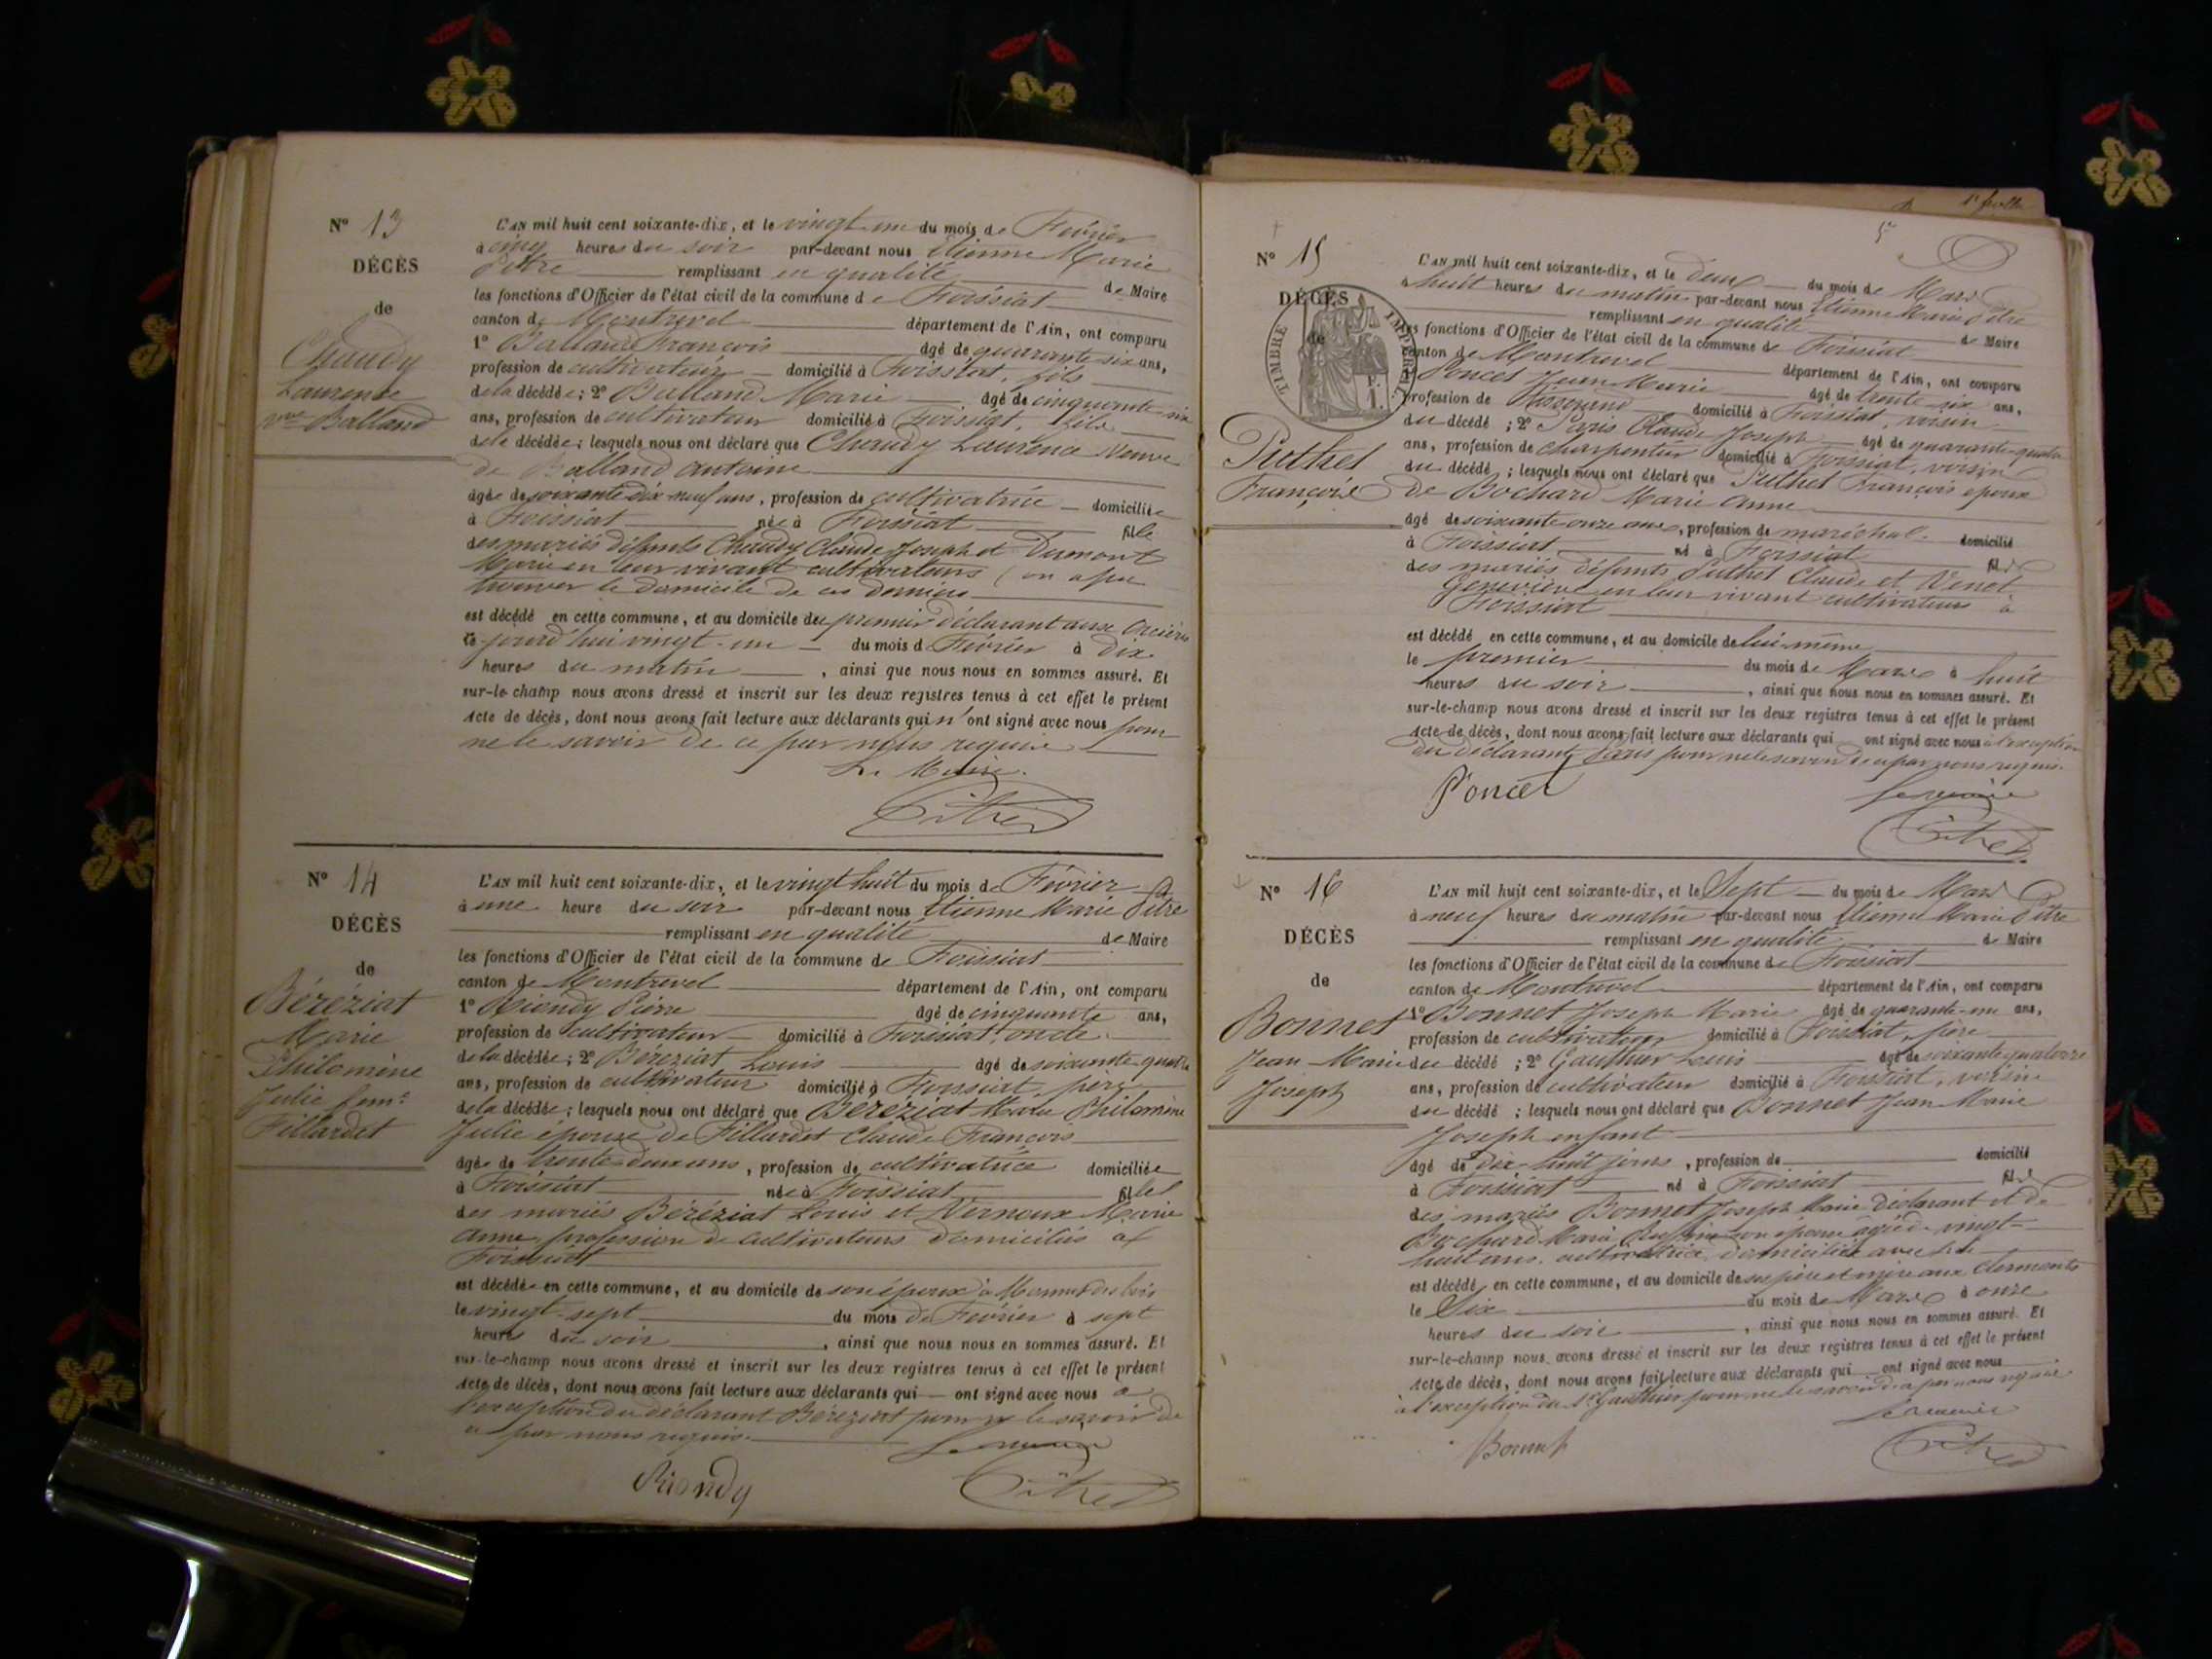 N° 13
DÉCÈS
de
Chaudy
Laurence
vve Balland
L'AN mil huit cent soixante-dix, et le vingt-un du mois de Février
à cinq heures du soir par-devant nous Etienne Marie
Pitre remplissant en qualité de Maire
les fonctions d'Officier de l'état civil de la commune de Foissiat
canton de Montrevel département de l'Ain, ont comparu
1° Balland François âgé de quarante-six ans,
profession de cultivateur domicilié à Foissiat, fils
de la décédée; 2° Balland Marie âgé de cinquante-six
ans, profession de cultivateur domicilié à Foissiat, fils
de la décédée; lesquels nous ont déclaré que Chaudy Laurence Veuve
de Balland Antoine
âgée de soixante-dix-neuf ans, profession de cultivatrice domiciliée
à Foissiat née à Foissiat fille
des mariés défunts Chaudy Claude Joseph et Dumont
Marie en leur vivant cultivateurs (on a pu
trouver le domicile de ces derniers
est décédé en cette commune, et au domicile du premier déclarant aux
ce jourd'hui vingt-un du mois de Février à dix
heures du matin, ainsi que nous nous en sommes assuré. Et
sur-le-champ nous avons dressé et inscrit sur les deux registres tenus à cet effet le présent
Acte de décès, dont nous avons fait lecture aux déclarants qui n'ont signé avec nous pour
ne le savoir de ce par nous requis
Le Maire.
Pitre
N° 14
DÉCÈS
de
Béréziat
Marie
Philomène
Julie fem
Fillardet
L'AN mil huit cent soixante-dix, et le vingt huit du mois de Février
à une heure du soir par-devant nous Etienne Marie Pitre
remplissant en qualité de Maire
les fonctions d'Officier de l'état civil de la commune de Foissiat
canton de Montrevel département de l'Ain, ont comparu
1° Riondy Pierre âgé de cinquante ans,
profession de cultivateur domicilié à Foissiat, oncle
de la décédée; 2° Béréziat Louis âgé de soixante-quatre
ans, profession de cultivateur domicilié à Foissiat, père
de la décédée; lesquels nous ont déclaré que Béréziat Marie Philomène
Julie épouse de Fillardet Claude François
âgée de trente-deux ans, profession de cultivatrice domiciliée
à Foissiat née à Foissiat fille
des mariés Béréziat Louis et Vernoux Marie
Anne, profession de cultivateurs domiciliés à
Foissiat
est décédée en cette commune, et au domicile de son époux à
le vingt-sept du mois de Février à sept
heures du soir, ainsi que nous nous en sommes assuré. Et
sur-le-champ nous avons dressé et inscrit sur les deux registres tenus à cet effet le présent
Acte de décès, dont nous avons fait lecture aux déclarants qui ont signé avec nous à
l'exception du déclarant Béréziat pour ne le savoir de
ce par nous requis.
Le maire
Riondy
Pitre
1e feuille
5e
N° 15
DÉCÈS
de
TIMBRE IMPERIAL
Puthet
François
L'AN mil huit cent soixante-dix, et le deux du mois de Mars
à huit heures du matin par-devant nous Etienne Marie Pitre
remplissant en qualité de Maire
les fonctions d'Officier de l'état civil de la commune de Foissiat
canton de Montrevel département de l'Ain, ont comparu
Poncet Jean Marie âgé de trente-six ans,
profession de domicilié à Foissiat, voisin
du décédé; 2° Paris Claude Joseph âgé de quarante-quatre
ans, profession de charpentier domicilié à Foissiat, voisin
du décédé; lesquels nous ont déclaré que Puthet François époux
de Bochard Marie Anne
âgé de soixante-onze ans, profession de maréchal domicilié
à Foissiat né à Foissiat fils
des mariés défunts Puthet Claude et Venet
Geneviève en leur vivant cultivateurs à
Foissiat
est décédé en cette commune, et au domicile de lui-même
le premier du mois de Mars à huit
heures du soir, ainsi que nous nous en sommes assuré. Et
sur-le-champ nous avons dressé et inscrit sur les deux registres tenus à cet effet le présent
Acte de décès, dont nous avons fait lecture aux déclarants qui ont signé avec nous à l'exception
du déclarant Paris pour ne le savoir de ce par nous requis.
Poncet
Le maire
Pitre
N° 16
DÉCÈS
de
Bonnet
Jean-Marie
Joseph
L'AN mil huit cent soixante-dix, et le Sept du mois de Mars
à neuf heures du matin par-devant nous Etienne Marie Pitre
remplissant en qualité de Maire
les fonctions d'Officier de l'état civil de la commune de Foissiat
canton de Montrevel département de l'Ain, ont comparu
1° Bonnet Joseph Marie âgé de quarante-un ans,
profession de cultivateur domicilié à Foissiat, père
du décédé; 2° Gauthier Louis âgé de soixante-quatorze
ans, profession de cultivateur domicilié à Foissiat, voisin
du décédé; lesquels nous ont déclaré que Bonnet Jean Marie
Joseph enfant
âgé de dix-huit jours, profession de domicilié
à Foissiat né à Foissiat fils
des mariés Bonnet Joseph Marie déclarant et de
Bochard Marie son épouse âgée de vingt-
huit ans, cultivatrice, domiciliée avec lui
est décédé en cette commune, et au domicile de ses père et mère aux Clermonts
le Six du mois de Mars à onze
heures du soir, ainsi que nous nous en sommes assuré. Et
sur-le-champ nous avons dressé et inscrit sur les deux registres tenus à cet effet le présent
Acte de décès, dont nous avons fait lecture aux déclarants qui ont signé avec nous
à l'exception du Sr Gauthier pour ne le savoir de ce par nous requis
Le maire
Bonnet
Pitre